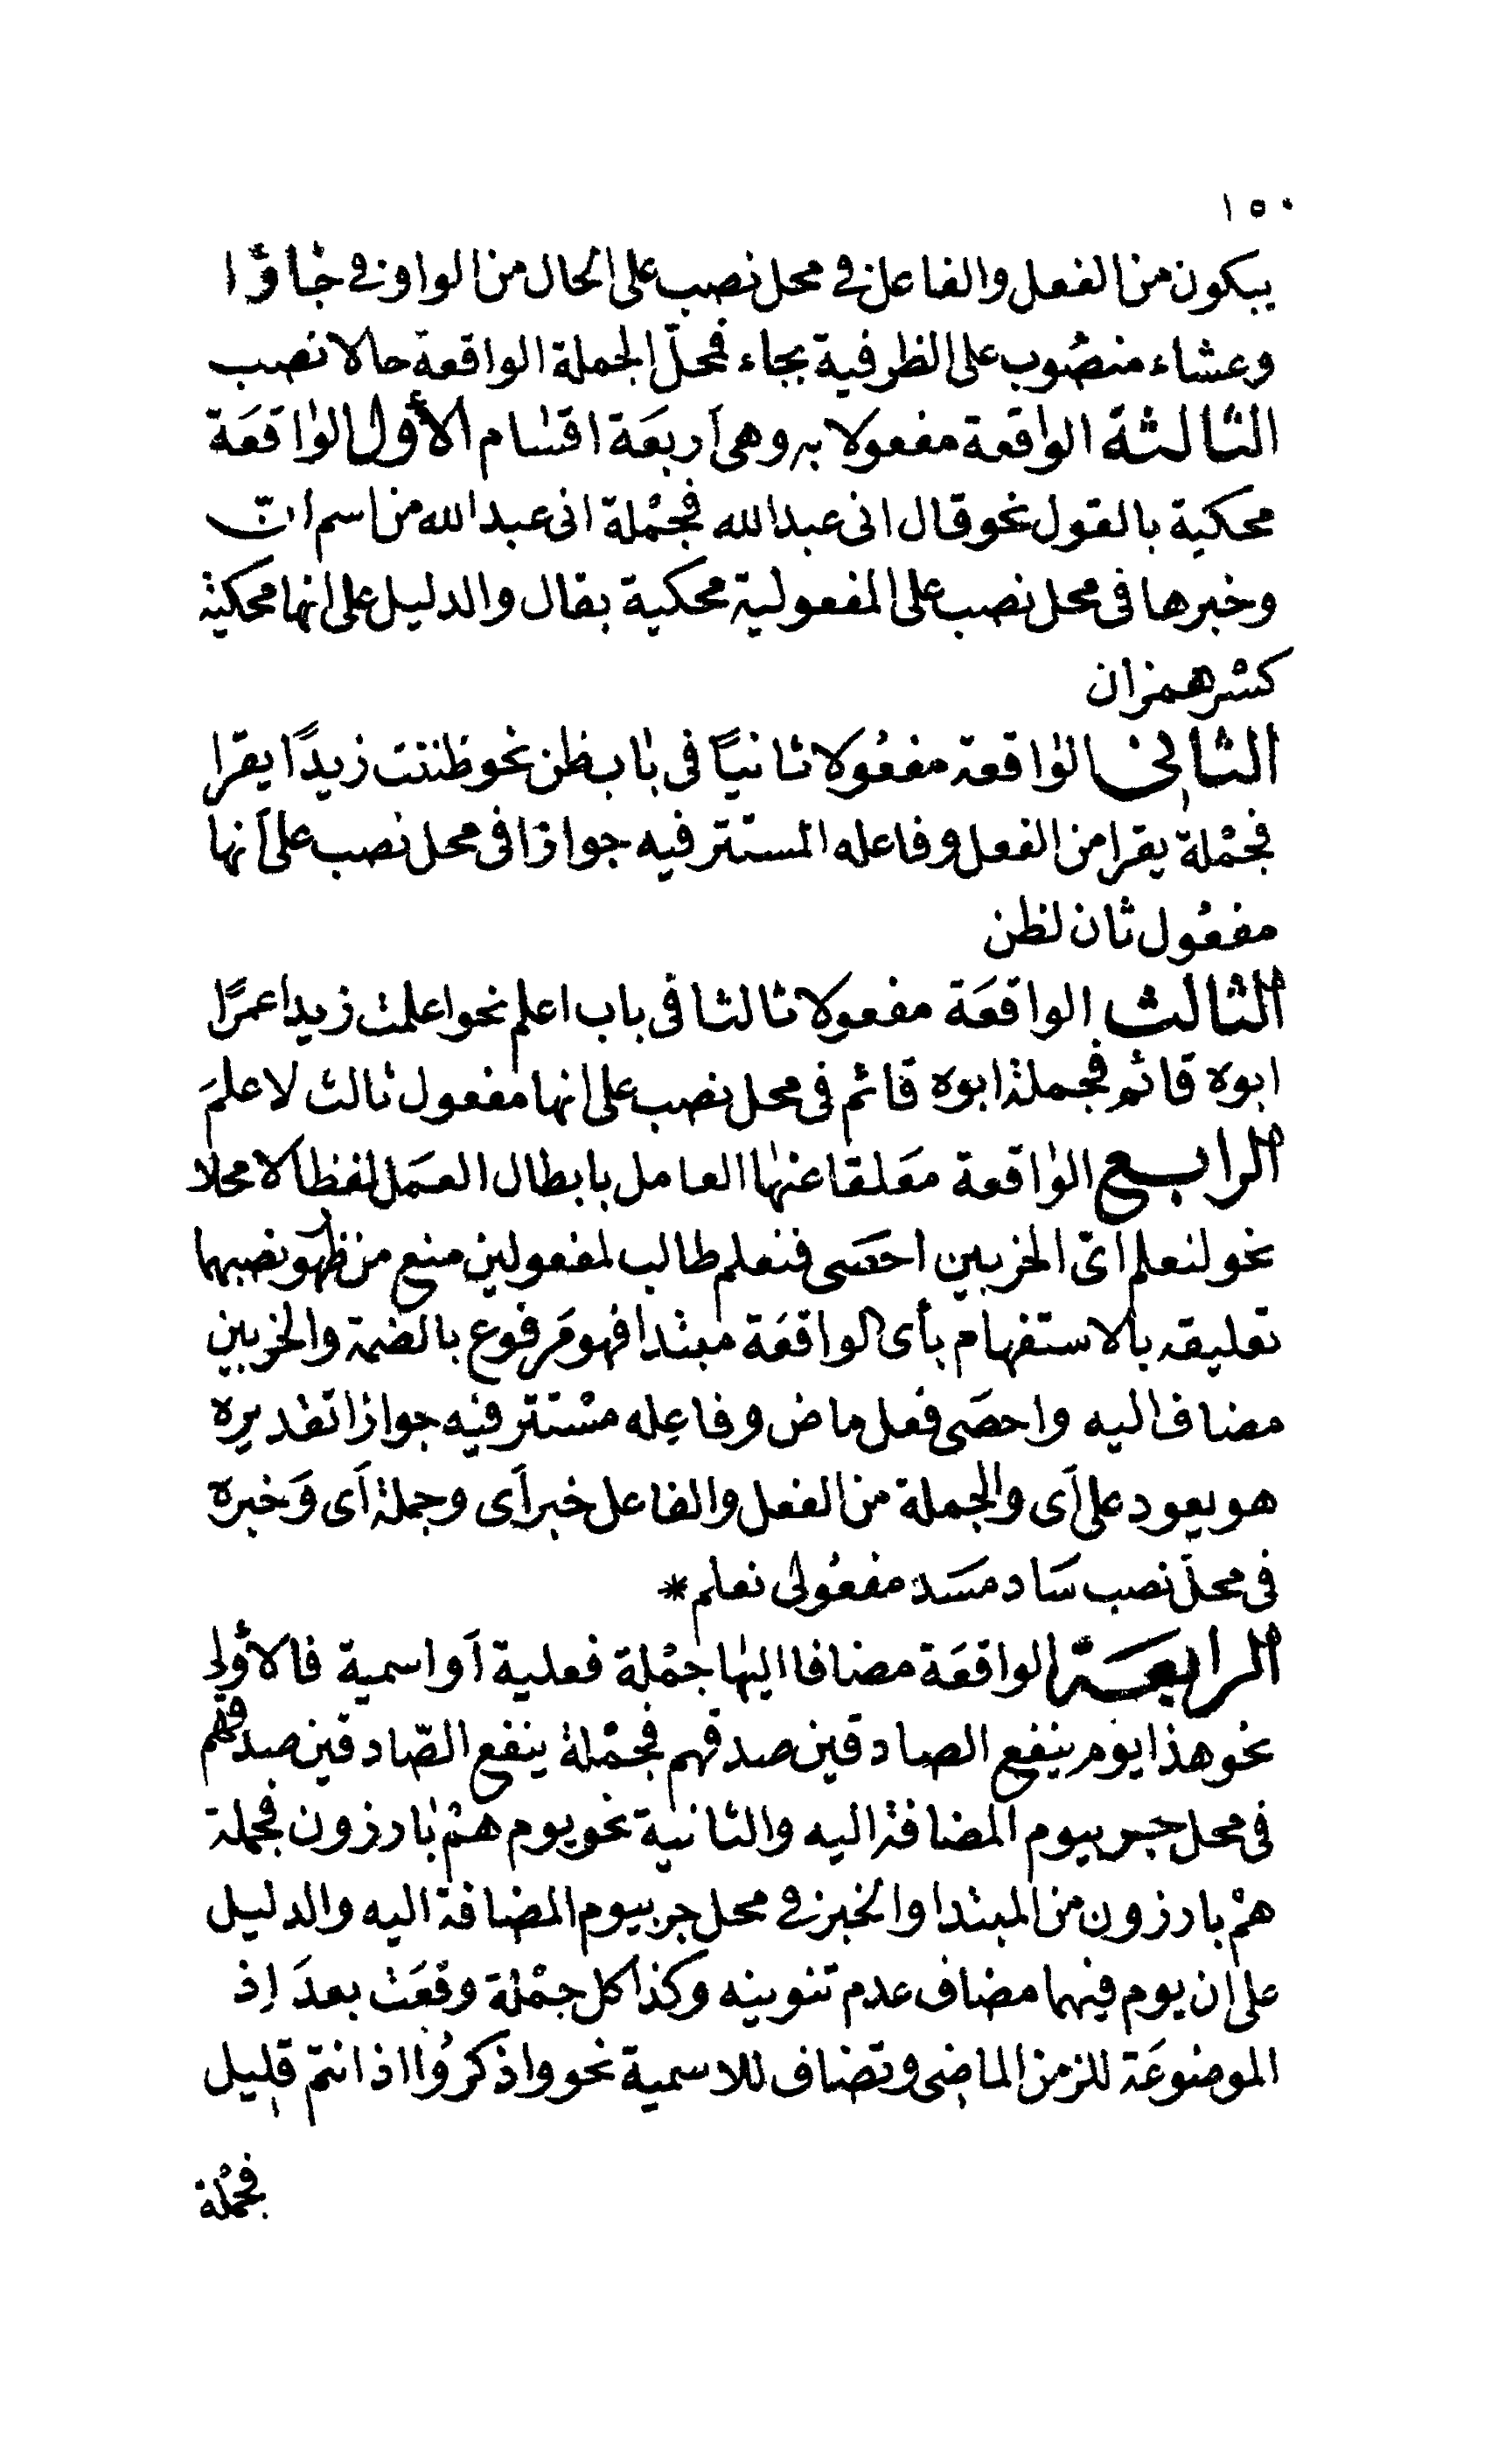 ١٥٠
يبكون من الفعل والفاعل في محل نصب على الحال من الواو في جاؤا
وعشاء منصوب على الظرفية بجاء فمحلّ الجملة الواقعة حالا نصب
الثالثة الواقعة مفعولا به وهى أربعَة اقسام الأول الواقعَة
محكية بالقول نحو قال انى عبد الله فجمْلة انى عبد الله من اسم انّ
وخبرها فى محل نصب على المفعولية محكية بقال والدليل على انها محكية
كسْر همز ان
الثانى الواقعة مفعُولا ثانيًا فى باب ظن نحو ظننت زيدًا يقرا
فجمْلة يقرا من الفعل وفاعله المستتر فيه جوازا فى محل نصب على أنها
مفعُول ثان لظن
الثالث الواقعَة مفعولا ثالثا فى باب اعلم نحو اعلمت زيدا عمرًا
ابوه قائم فجملة ابوه قائم فى محل نصب على انها مفعول ثالث لاعلمَ
الرابع الواقعة معَلقا عنها العامل بابطال العمَل لفظا لا محلا
نحو لنعلم اىّ الحزبين احصَى فنعلم طالب لمفعولين منع من ظهور نصبهما
تعليقه بالاستفهام بأى الواقعَة مبتدا فهو مَرفوع بالضمة والحزبين
مضاف اليه واحصَى فعل ماض وفاعِله مسْتتر فيه جوازا تقديره
هو يعود على أى والجملة من الفعل والفاعل خبر أى وجملة أى وَخبره
فى محلّ نصب سَاد مسَد مفعُولى نعلم *
الرابعَة الواقعَة مضافا اليها جمْلة فعلية أو اسمية فالأولى
نحو هذا يوم ينفع الصادقين صدقهم فجمْلة ينفع الصّادقين صدقهم
فى محل جر بيوم المضافة اليه والثانية نحو يوم همْ بارزون فجملة
همْ بارزون من المبتدا والخبر في محل جر بيوم المضافة اليه والدليل
على ان يوم فيهما مضاف عدم تنوينه وكذا كل جمْلة وقعَت بعدَ اِذ
الموضوعَة للزمن الماضى وتضاف للاسمية نحو واذكرُوا اذ انتم قليل
فجملة